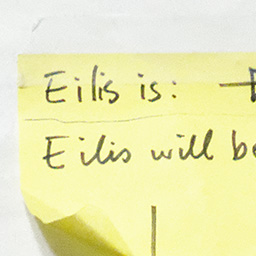 Eilis is:
Eilis will be